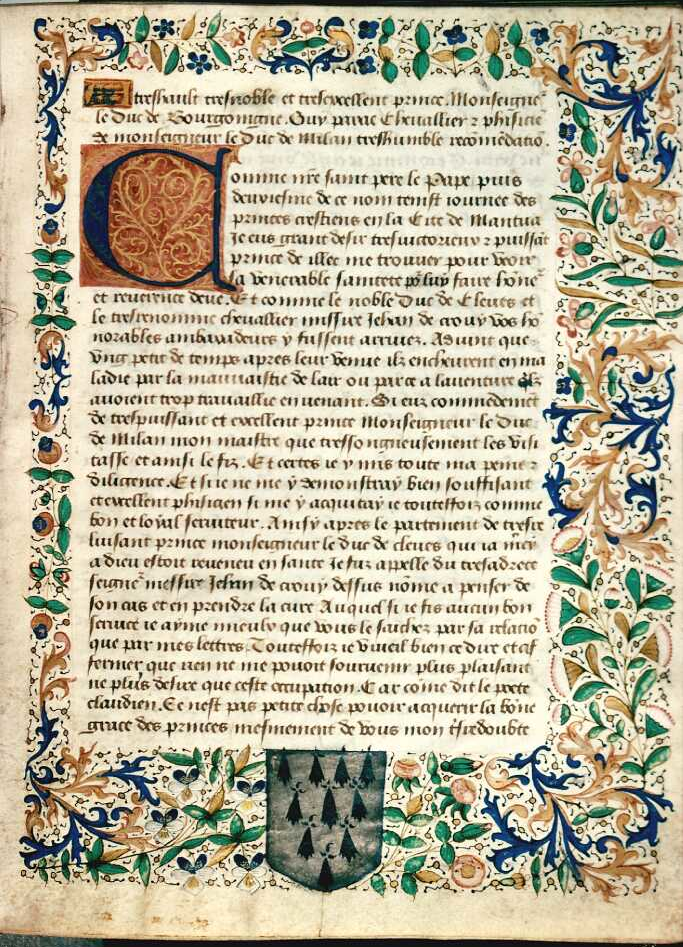 A treshault tresnoble et tresexcellent prince. Monseignẽ
le Duc de Bourgoingne. Guy parat Chevallier ⁊ phisiciẽ
de monseigneur le Duc de Milan treshumble recõmẽdatiõ.
Comme nr̃e saint pere le Pape puis
deuxiesme de ce nom tenist iournee des
princes crestiens en la Cite de Mantua
Je eus grant desir tresvictorieux ⁊ puissãt
prince de illec me trouver pour veoir
sa venerable sainctete ⁊ luy faire hõne᷑
et reverence deue. Et comme le noble Duc de Cleves et
le tresrenomme chevallier missire Jehan de crouy vos hõ
norables ambaxadeurs y fussent arrivez. Advint que
ung petit de temps apres leur venue ilz encheurent en ma
ladie par la mauvaistie de lair ou parce a laventure q̃lz
avoient trop travaillie en venant. Si euz commẽdemẽt
de trespuissant et excellent prince Monseigneur le Duc
de Milan mon maistre que tressoingneusement les visi
tasse et ainsi le fiz. Et certes ie y mis toute ma peine ⁊
diligence. Et si ie ne me y demonstray bien souffisant
et excellent phisicien si me y acquitay ie touteffoiz comme
bon et loyal serviteur. Ainsy apres le partement de tresre
luisant prince monseigneur le duc de cleves qui ia m̃cy
a dieu estoit revenu en sante Je fuz appelle du tresadrece
seigne᷑ messire Jehan de crouy dessus nõme a penser de
son cas et en prendre la cure Auquel si ie fis aucun bon
service ie ayme mieulx que vous le sachez par sa relatiõ
que par mes lettres. Touteffoiz ie vueil bien ce dire et af
fermer que rien ne me povoit sourvenir plus plaisant
ne plus desire que ceste occupation. Car cõme dit le poete
claudien. Ce nest pas petite chose povoir acquerir la bõne
grace des princes mesmement de vous mon tresredoubte